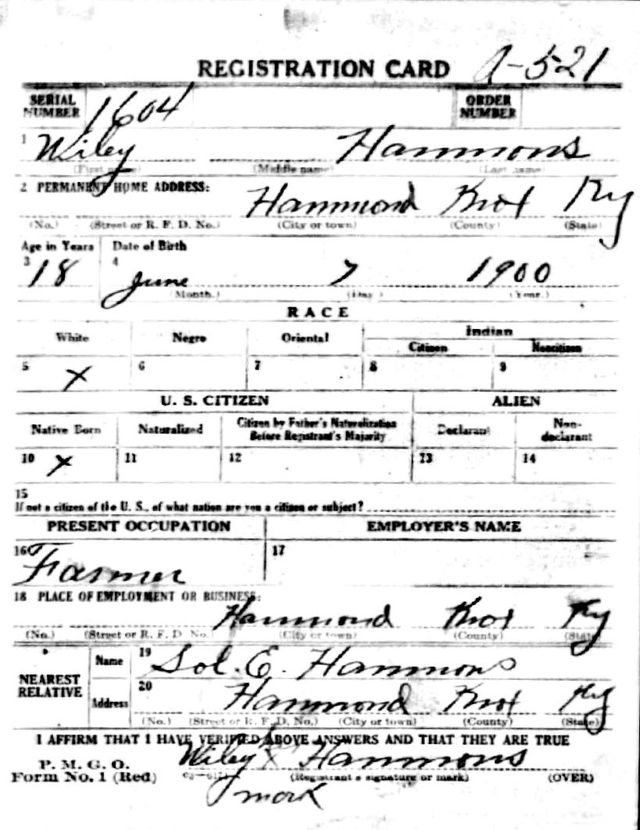 REGISTRATION CARD A-521
SERIAL NUMBER 1604 ORDER NUMBER
1 Wiley Hammons
(First name) (Middle name) (Last name)
2 PERMANENT HOME ADDRESS: Hammond Knox Ky
(No.) (Street or R. F. D. No.) (City or town) (County) (State)
Age in Years Date of Birth
3 18 4 June 7 1900
(Month.) (Day.) (Year.)
RACE
White Negro Oriental Indian
Citizen Noncitizen
5 X 6 7 8 9
U. S. CITIZEN ALIEN
Native Born Naturalized Citizen by Father's Naturalization Before Registrant's Majority Declarant Non-declarant
10 X 11 12 13 14
15
If not a citizen of the U. S., of what nation are you a citizen or subject?
PRESENT OCCUPATION EMPLOYER'S NAME
16 Farmer 17
18 PLACE OF EMPLOYMENT OR BUSINESS: Hammond Knox Ky
(No.) (Street or R. F. D. No.) (City or town) (County) (State)
NEAREST RELATIVE Name 19 Sol. E. Hammons
Address 20 Hammond Knox Ky
(No.) (Street or R. F. D. No.) (City or town) (County) (State)
I AFFIRM THAT I HAVE VERIFIED ABOVE ANSWERS AND THAT THEY ARE TRUE
P. M. G. O. Wiley X Hammons
Form No. 1 (Red) (Registrant's signature or mark) (OVER)
mark